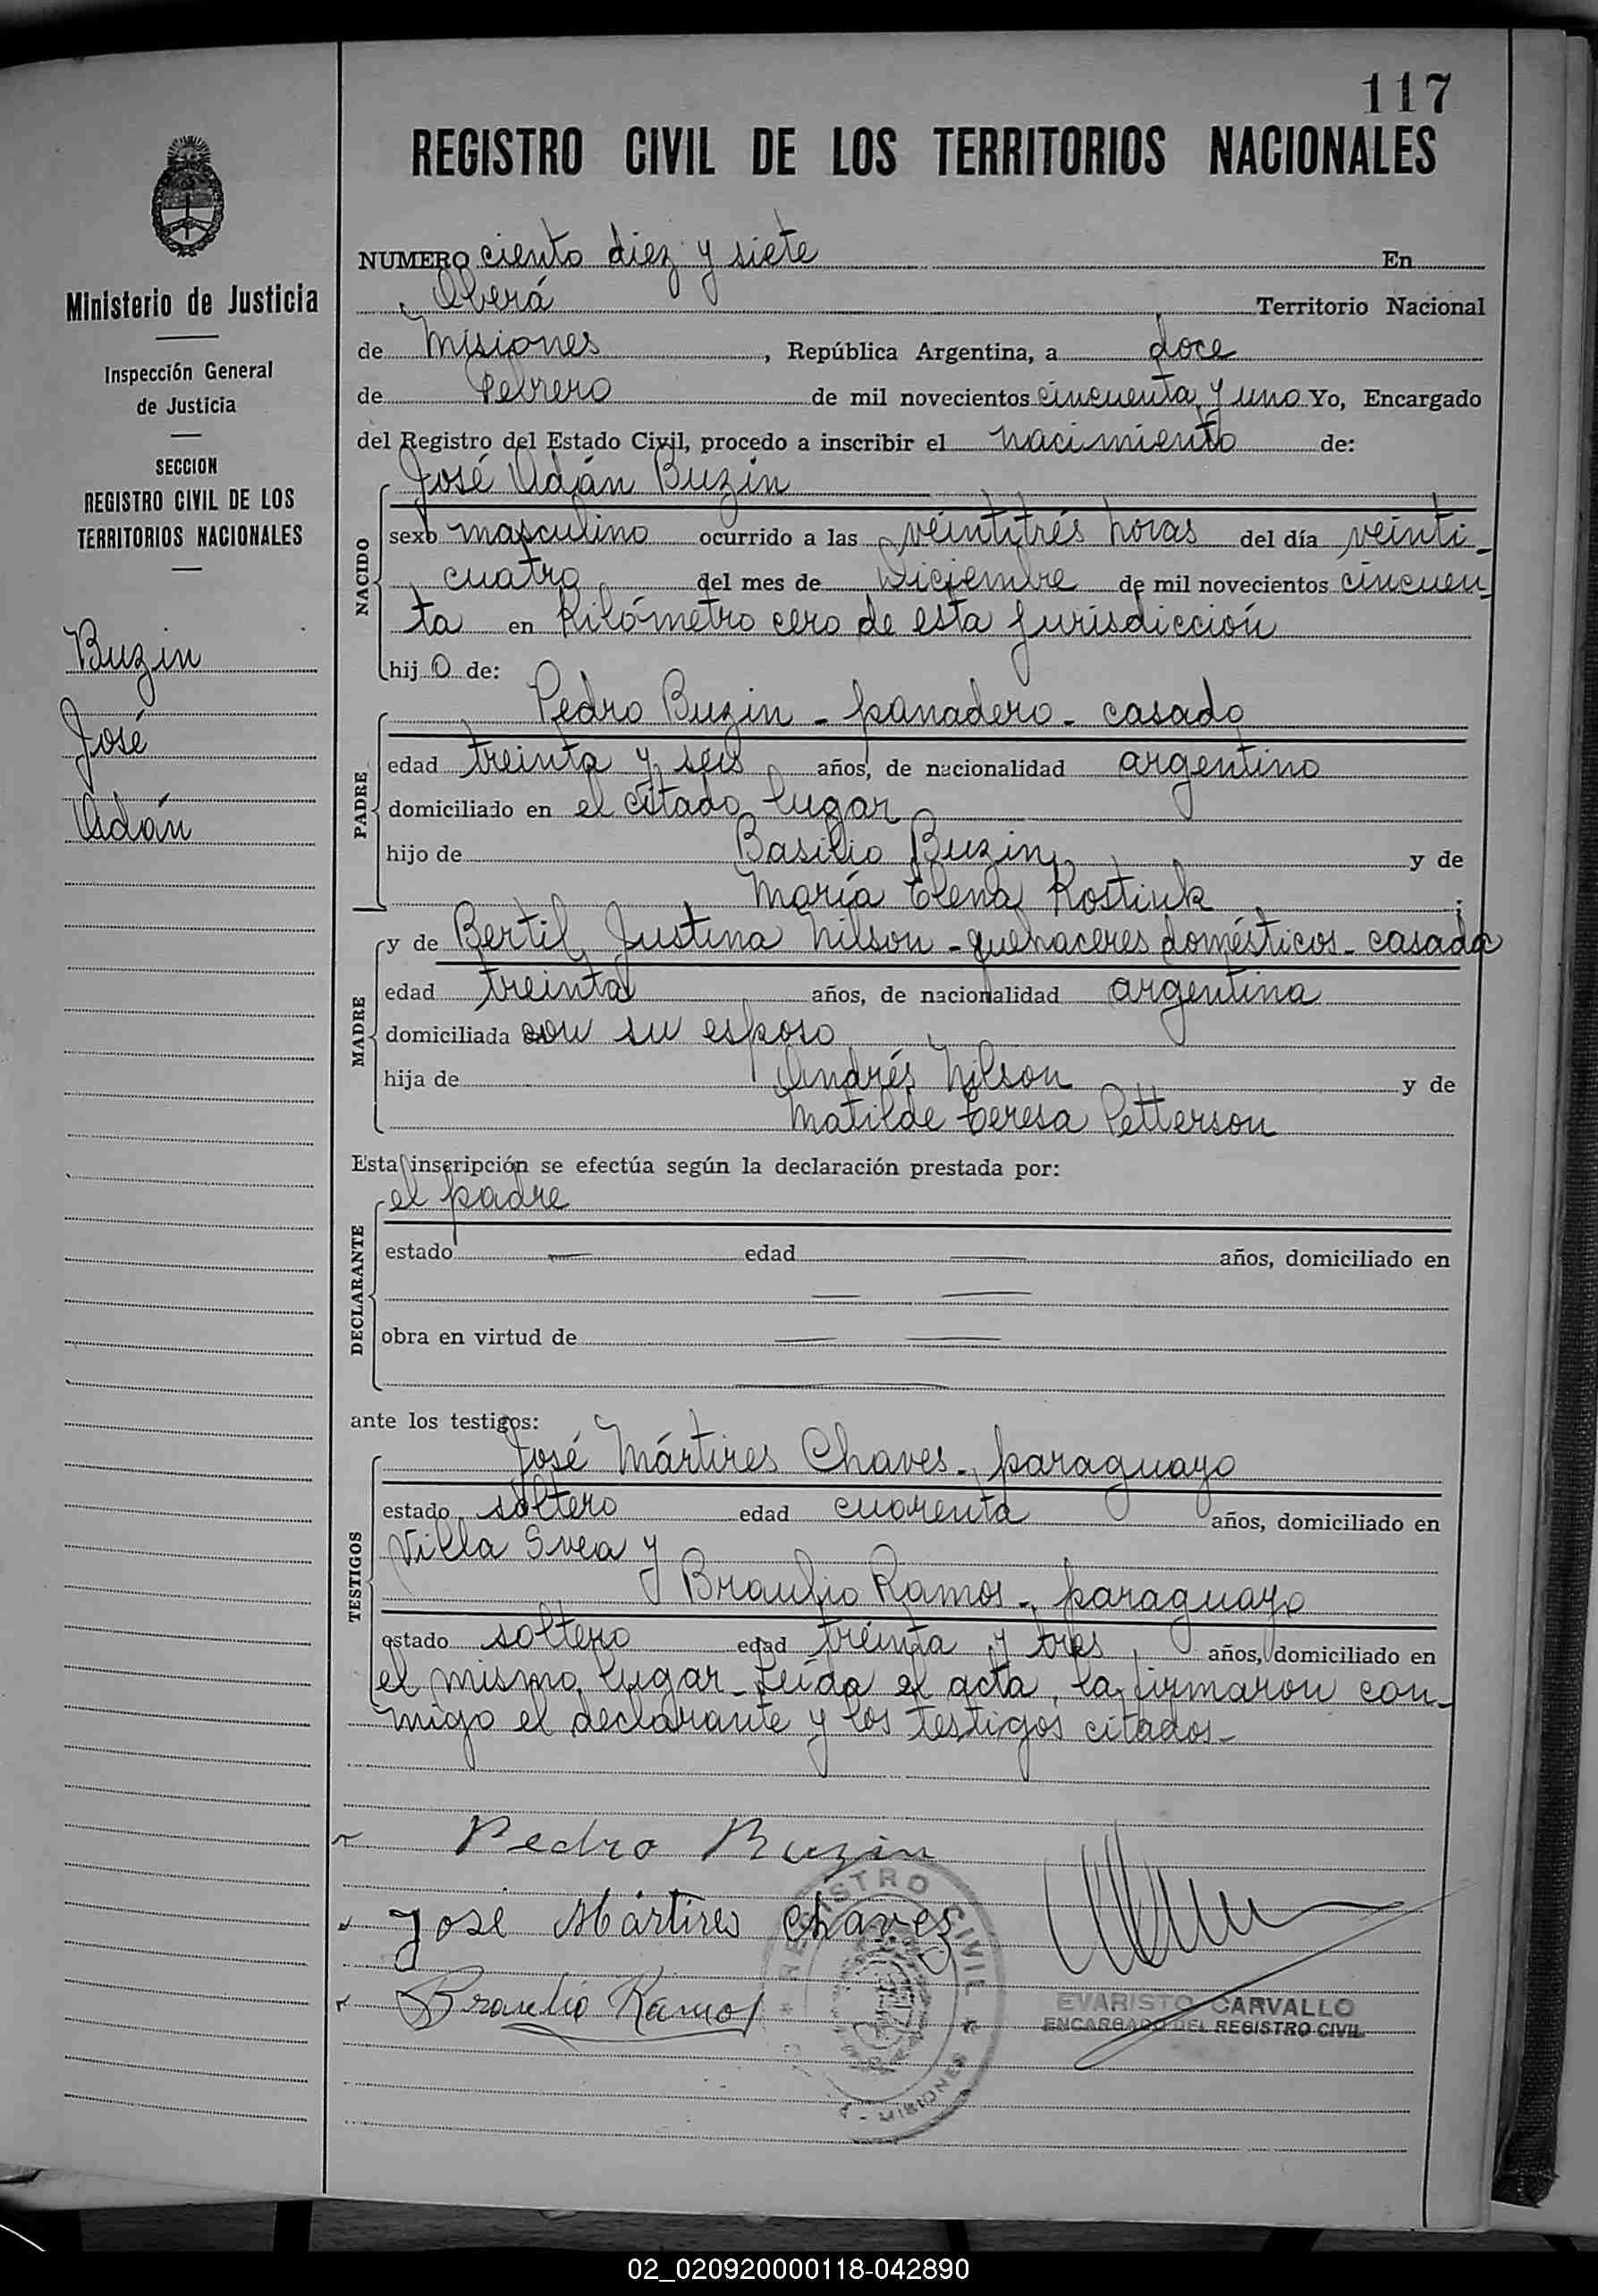 117
REGISTRO CIVIL DE LOS TERRITORIOS NACIONALES
Ministerio de Justicia
Inspección General
de Justicia
SECCION
REGISTRO CIVIL DE LOS
TERRITORIOS NACIONALES
Buzin
José
Adán
NUMERO ciento diez y siete En
Oberá Territorio Nacional
de Misiones, República Argentina, a doce
de Febrero de mil novecientos cincuenta y uno Yo, Encargado
del Registro del Estado Civil, procedo a inscribir el nacimiento de:
José Adán Buzin
NACIDO
sexo masculino ocurrido a las veintitrés horas del día veinti-
cuatro del mes de Diciembre de mil novecientos cincuen-
ta en Kilómetro cero de esta jurisdicción
hijo de:
Pedro Buzin - panadero - casado
PADRE
edad treinta y seis años, de nacionalidad argentino
domiciliado en el citado lugar
hijo de Basilio Buzin y de
María Elena Kostiuk;
y de Bertil Justina Nilson - quehaceres domésticos - casada
MADRE
edad treinta años, de nacionalidad argentina
domiciliada con su esposo
hija de Andrés Nilson y de
Matilde Teresa Petterson
Esta inscripción se efectúa según la declaración prestada por:
el padre
DECLARANTE
estado — edad — años, domiciliado en
— —
obra en virtud de — —
—
ante los testigos:
José Mártires Chaves - paraguayo
TESTIGOS
estado soltero edad cuarenta años, domiciliado en
Villa Svea y
Braulio Ramos - paraguayo
estado soltero edad treinta y tres años, domiciliado en
el mismo lugar - Leída el acta, la firmaron con-
migo el declarante y los testigos citados -
Pedro Buzin
José Mártires Chaves
Braulio Ramos
REGISTRO CIVIL
MISIONES
EVARISTO CARVALLO
ENCARGADO DEL REGISTRO CIVIL
02_020920000118-042890